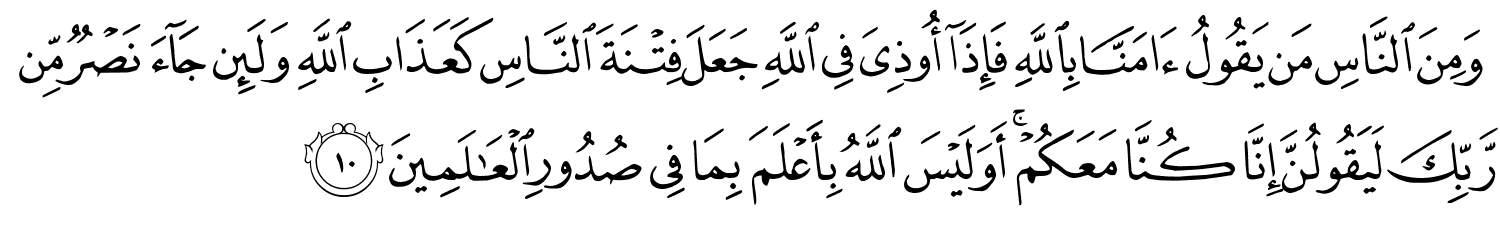 وَمِنَ ٱلنَّاسِ مَن يَقُولُ ءَامَنَّا بِٱللَّهِ فَإِذَآ أُوذِىَ فِى ٱللَّهِ جَعَلَ فِتْنَةَ ٱلنَّاسِ كَعَذَابِ ٱللَّهِ وَلَئِن جَآءَ نَصْرٌ مِّن
رَّبِّكَ لَيَقُولُنَّ إِنَّا كُنَّا مَعَكُمْ ۚ أَوَلَيْسَ ٱللَّهُ بِأَعْلَمَ بِمَا فِى صُدُورِ ٱلْعَٰلَمِينَ ١٠